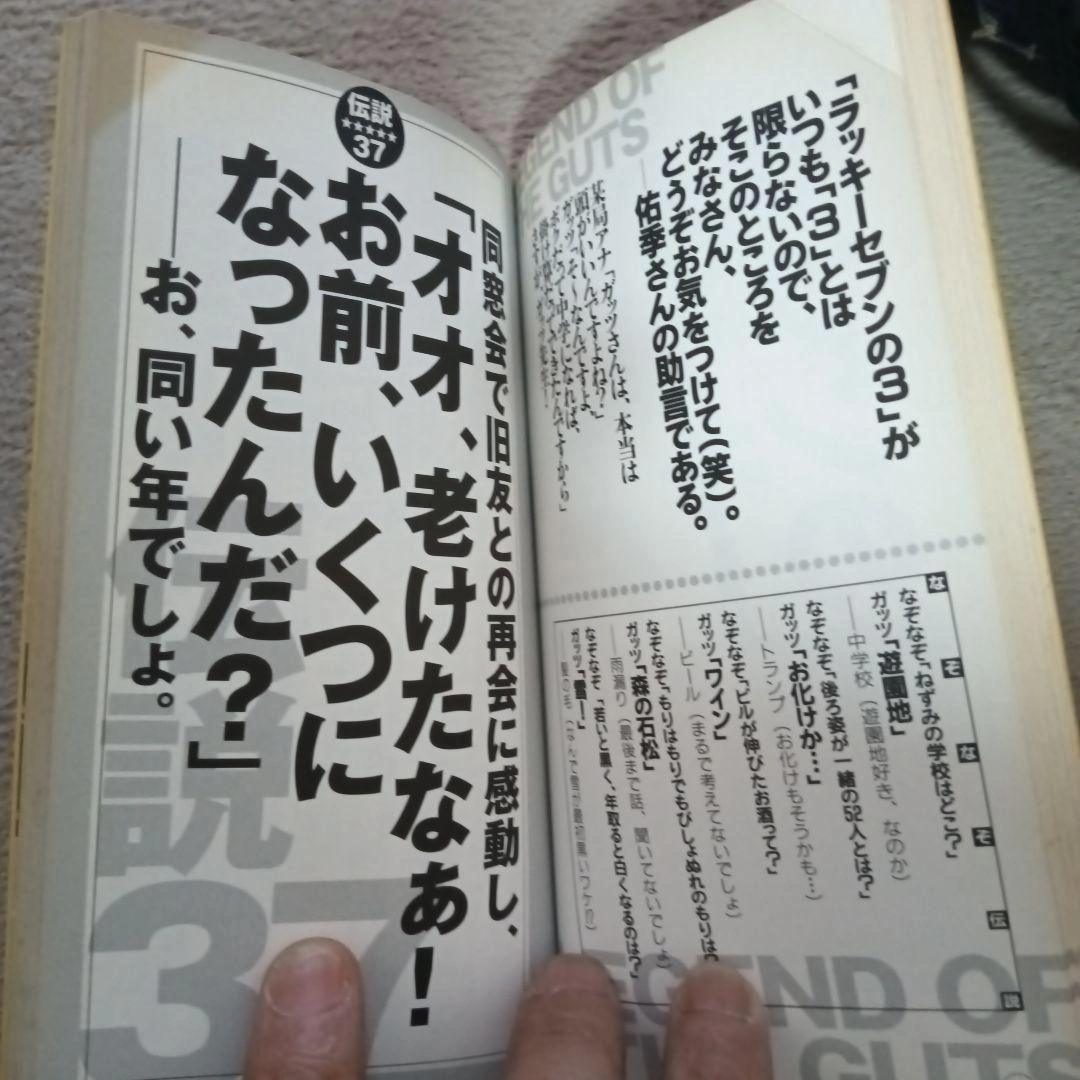 「ラッキーセブンの3」が
いつも「3」とは
限らないので、
そこのところを
みなさん、
どうぞお気をつけて(笑)。
――佑季さんの助言である。
某局アナ「ガッツさんは、本当は
頭がいいんですよね?」
ガッツ「そ〜なんですよ、
中学になれば、
LEGEND OF
THE GUTS
なぞなぞ伝説
なぞなぞ「ねずみの学校はどこ?」
ガッツ「遊園地」
――中学校(遊園地好き、なのか)
なぞなぞ「後ろ姿が一緒の52人とは?」
ガッツ「お化けか…」
――トランプ(お化けもそうかも…)
なぞなぞ「ビルが伸びたお酒って?」
ガッツ「ワイン」
――ビール(まるで考えてないでしょ)
なぞなぞ「もりはもりでもびしょぬれのもりは?」
ガッツ「森の石松」
――雨漏り(最後まで話、聞いてないでしょ)
なぞなぞ「若いと黒く、年取ると白くなるのは?」
ガッツ「雪ー!」
――髪の毛(なんで雪が最初黒いワケ!?)
LEGEND OF
THE GUTS
伝説
★★★★★
37
同窓会で旧友との再会に感動し、
「オオ、老けたなぁ!
お前、いくつに
なったんだ?」
――お、同い年でしょ。
伝説
37